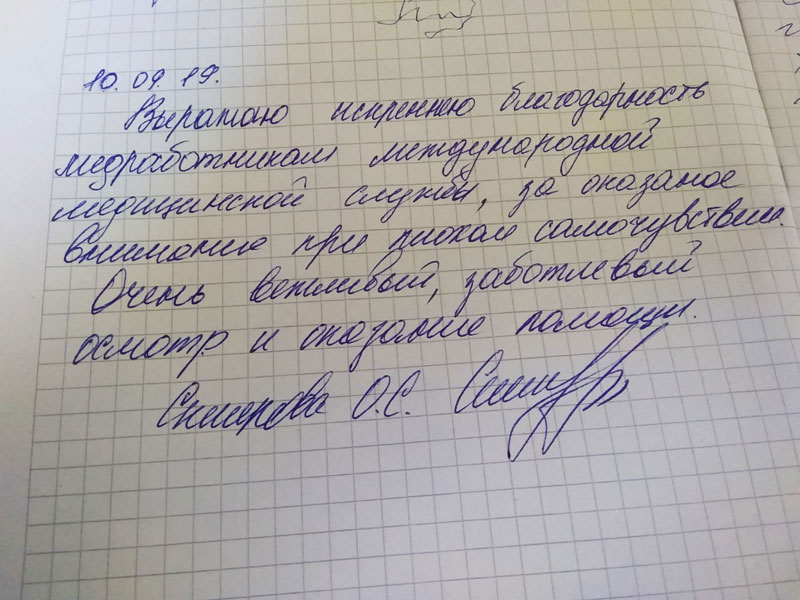 10.09.19.
Выражаю искреннюю благодарность
медработникам международной
медицинской службы, за оказаное
внимание при плохом самочувствии.
Очень вежливый, заботлевый
осмотр и оказание помощи.
Смирнова О.С.